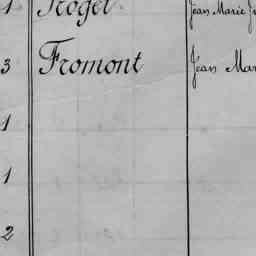 1 Rogel Jean Marie
3 Fromont Jean Mar
1
1
2